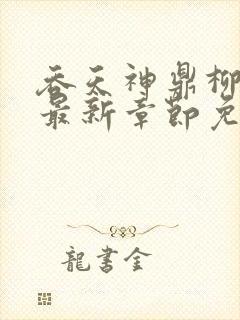 吞天神鼎柳
最新章节免
龍書金